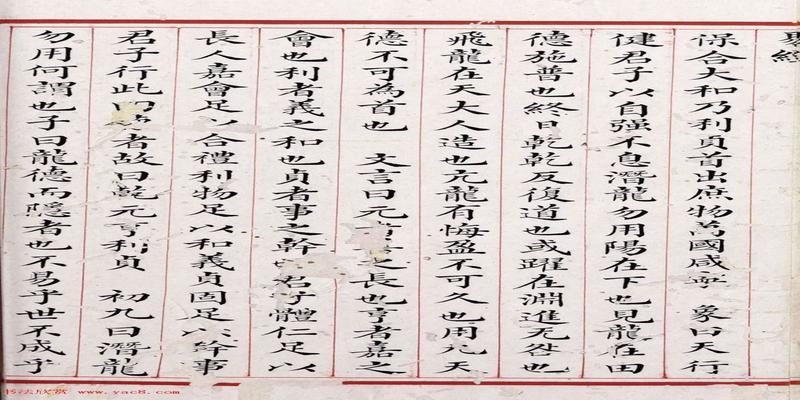 經
保合大和乃利貞首出庶物萬國咸寧 象曰天行
健君子以自强不息潛龍勿用陽在下也見龍在田
德施普也終日乾乾反復道也或躍在淵進无咎也
飛龍在天大人造也亢龍有悔盈不可久也用九天
德不可為首也 文言曰元之長也亨者嘉之
會也利者義之和也貞者事之幹君子體仁足以
長人嘉會足以合禮利物足以和義貞固足以幹事
君子行此四者故曰乾元亨利貞 初九曰潛龍
勿用何謂也子曰龍德而隱者也不易乎世不成乎
书法欣赏 www.yac8.com